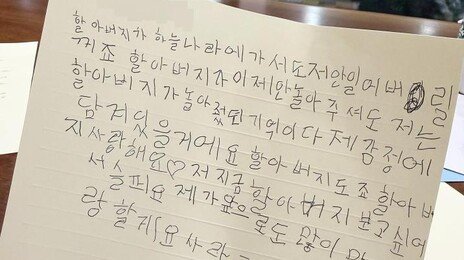 할아버지가 하늘나라에가서도저안잊어버릴
꺼죠 할아버지가이제안놀아주셔도 저는
할아버지가놀아줬뒤기억이다 제감정에
담겨있을거에요 할아버지도죠 할아버
지사랑해요♡저지금할아버지보고싶어
서슬퍼요 제가앞으로도 많이
랑할게요사라